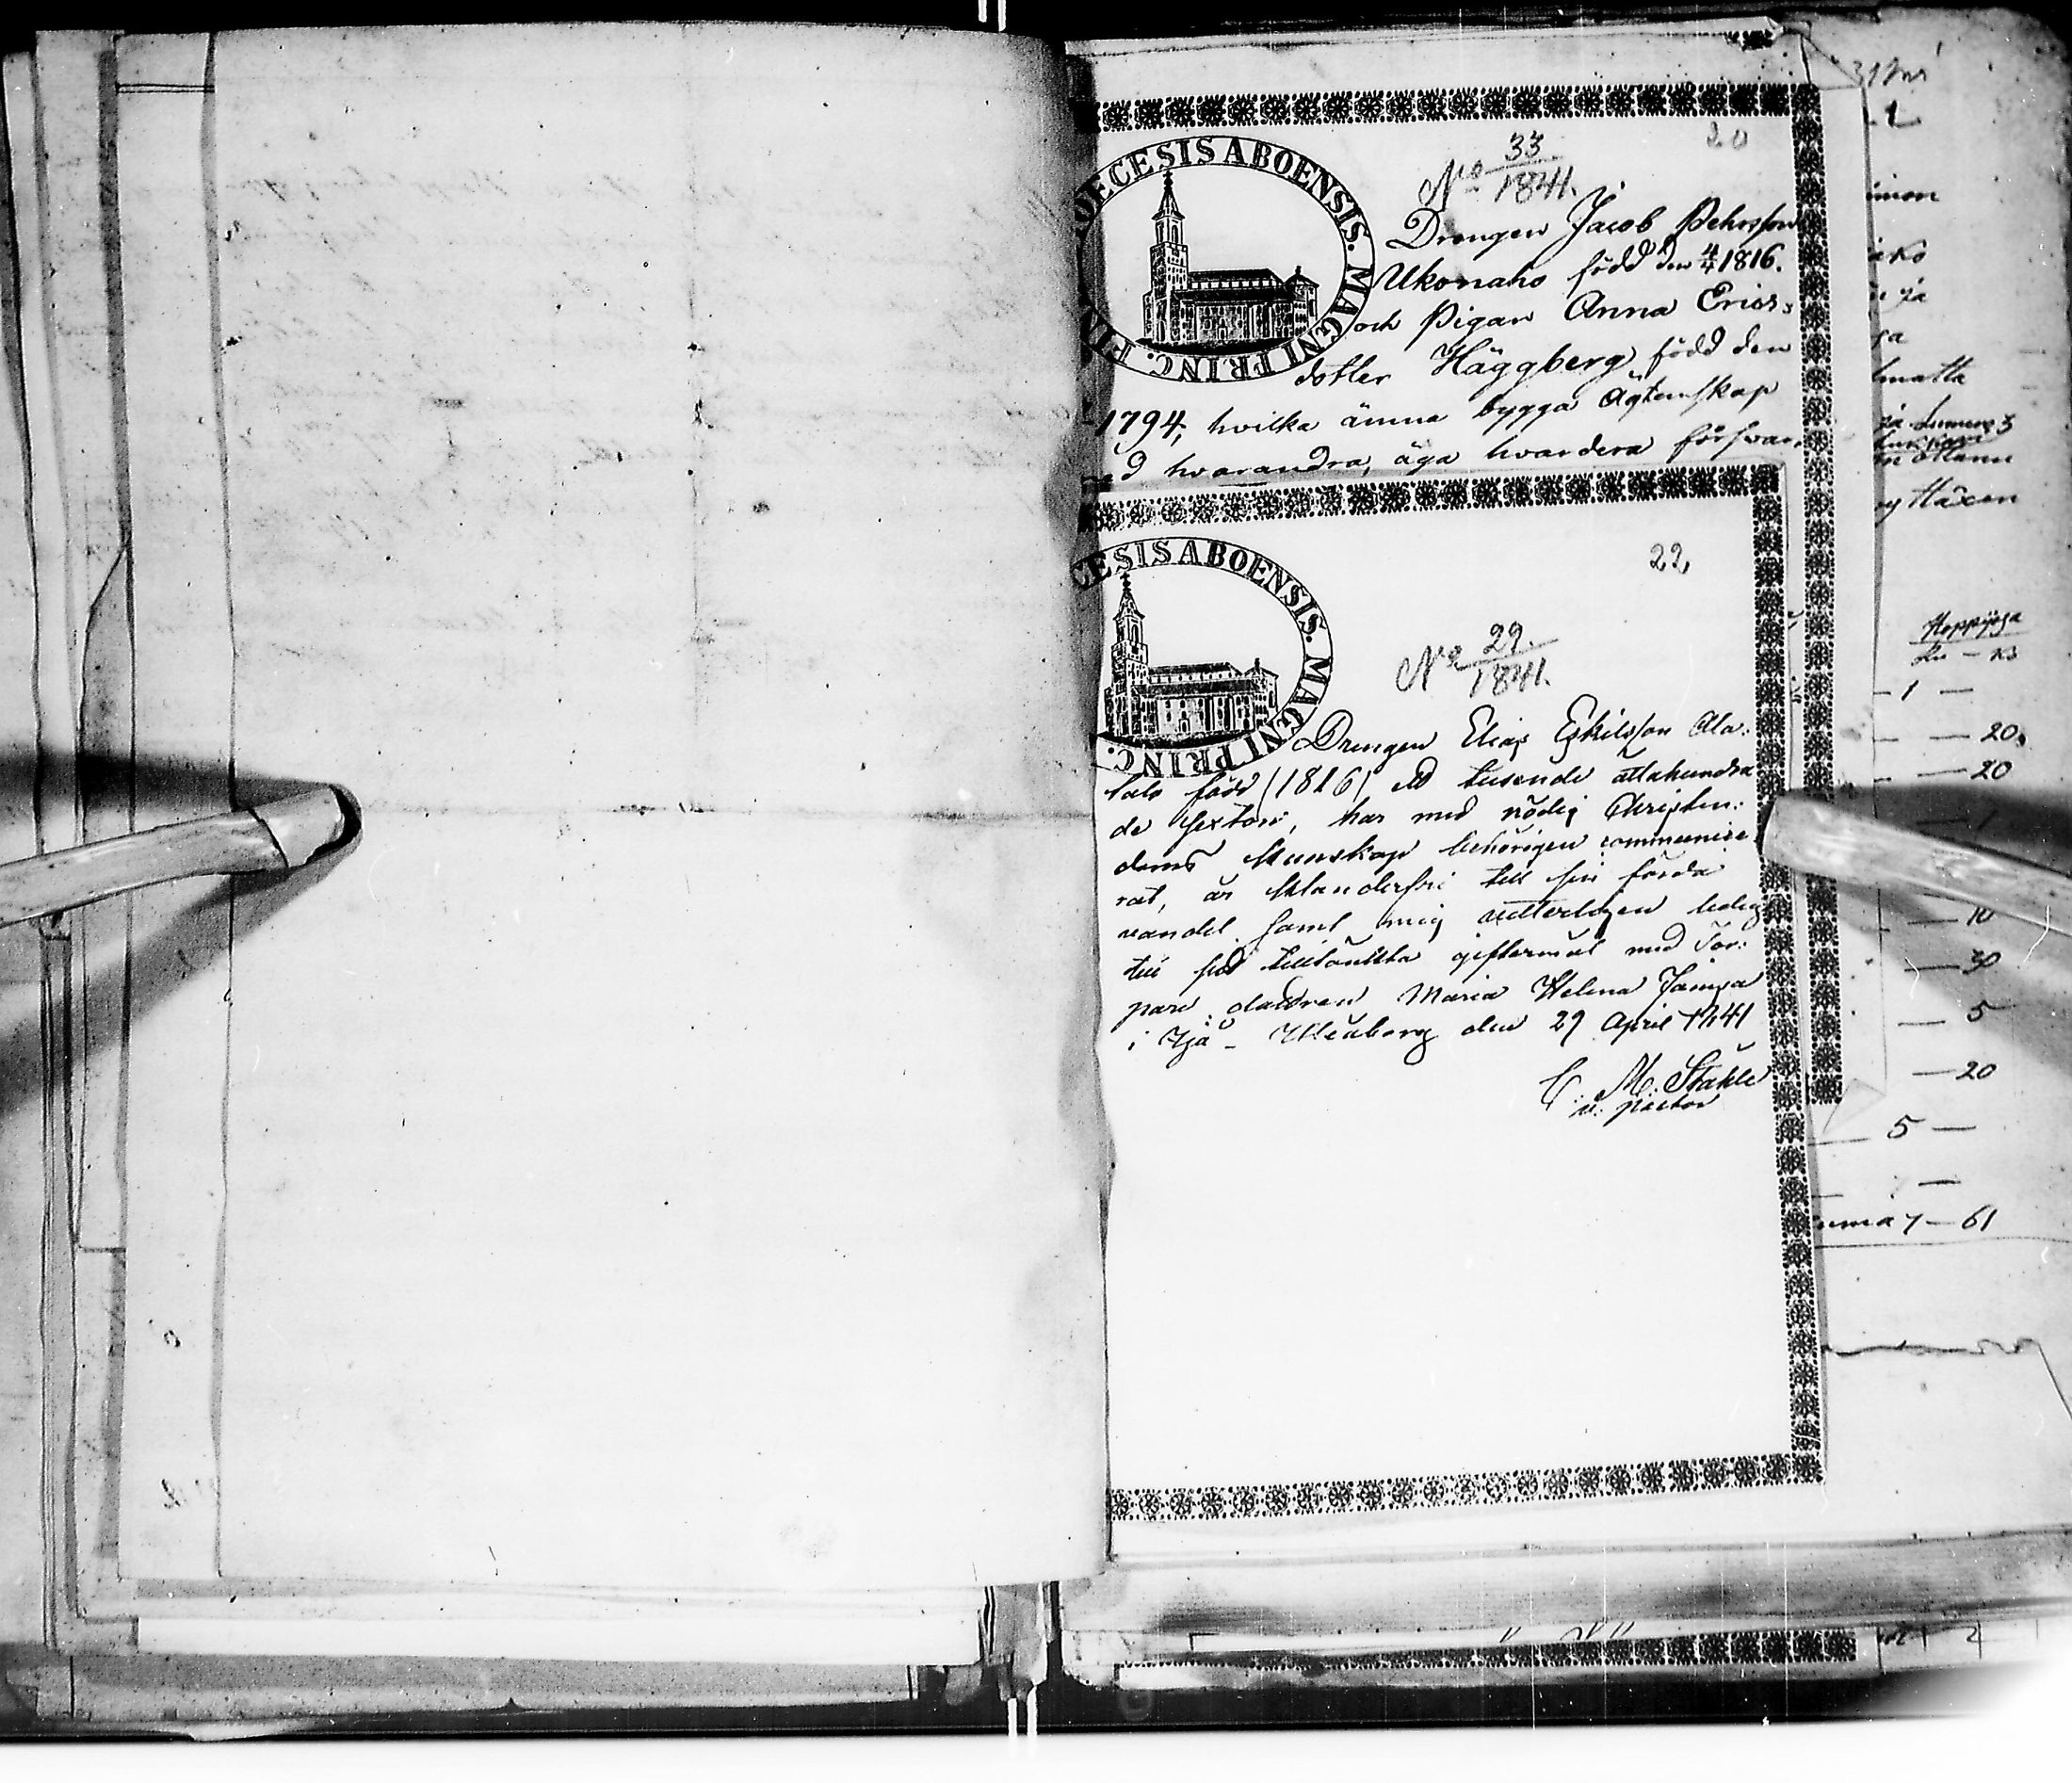 DIOECESIS ABOENSIS. MAGNI PRINC. FIN
20
No 33/1841.
Drengen Jacob Pehrsson
Ukonaho född den 4/4 1816.
och Pigan Anna Erics-
dotter Häggberg, född den
1794, hvilka ämna bygga Ägtenskap
med hvarandra, äga hvardera försvar,
CESIS ABOENSIS. MAGNI PRINC.
22
No 29/1841.
Drengen Elias Eskilsson Ala-
talo född (1816) ett tusende åttahundra
de sexton, har med nödig Christen-
doms kunskap behörigen communice-
rat, är klanderfri till sin förda
vandel samt mig vetterligen ledig
till sitt tilltänkta giftermål med Tor-
pare dottren Maria Helena Jampa
i Ijå - Uleåborg den 29 April 1841
C. M. Ståhle
v. pastor
31
1
matta
Hoppiga
1 —
— 20
— 20
— 10
— 30
— 5
— 20
— 5 —
umma 7 — 61